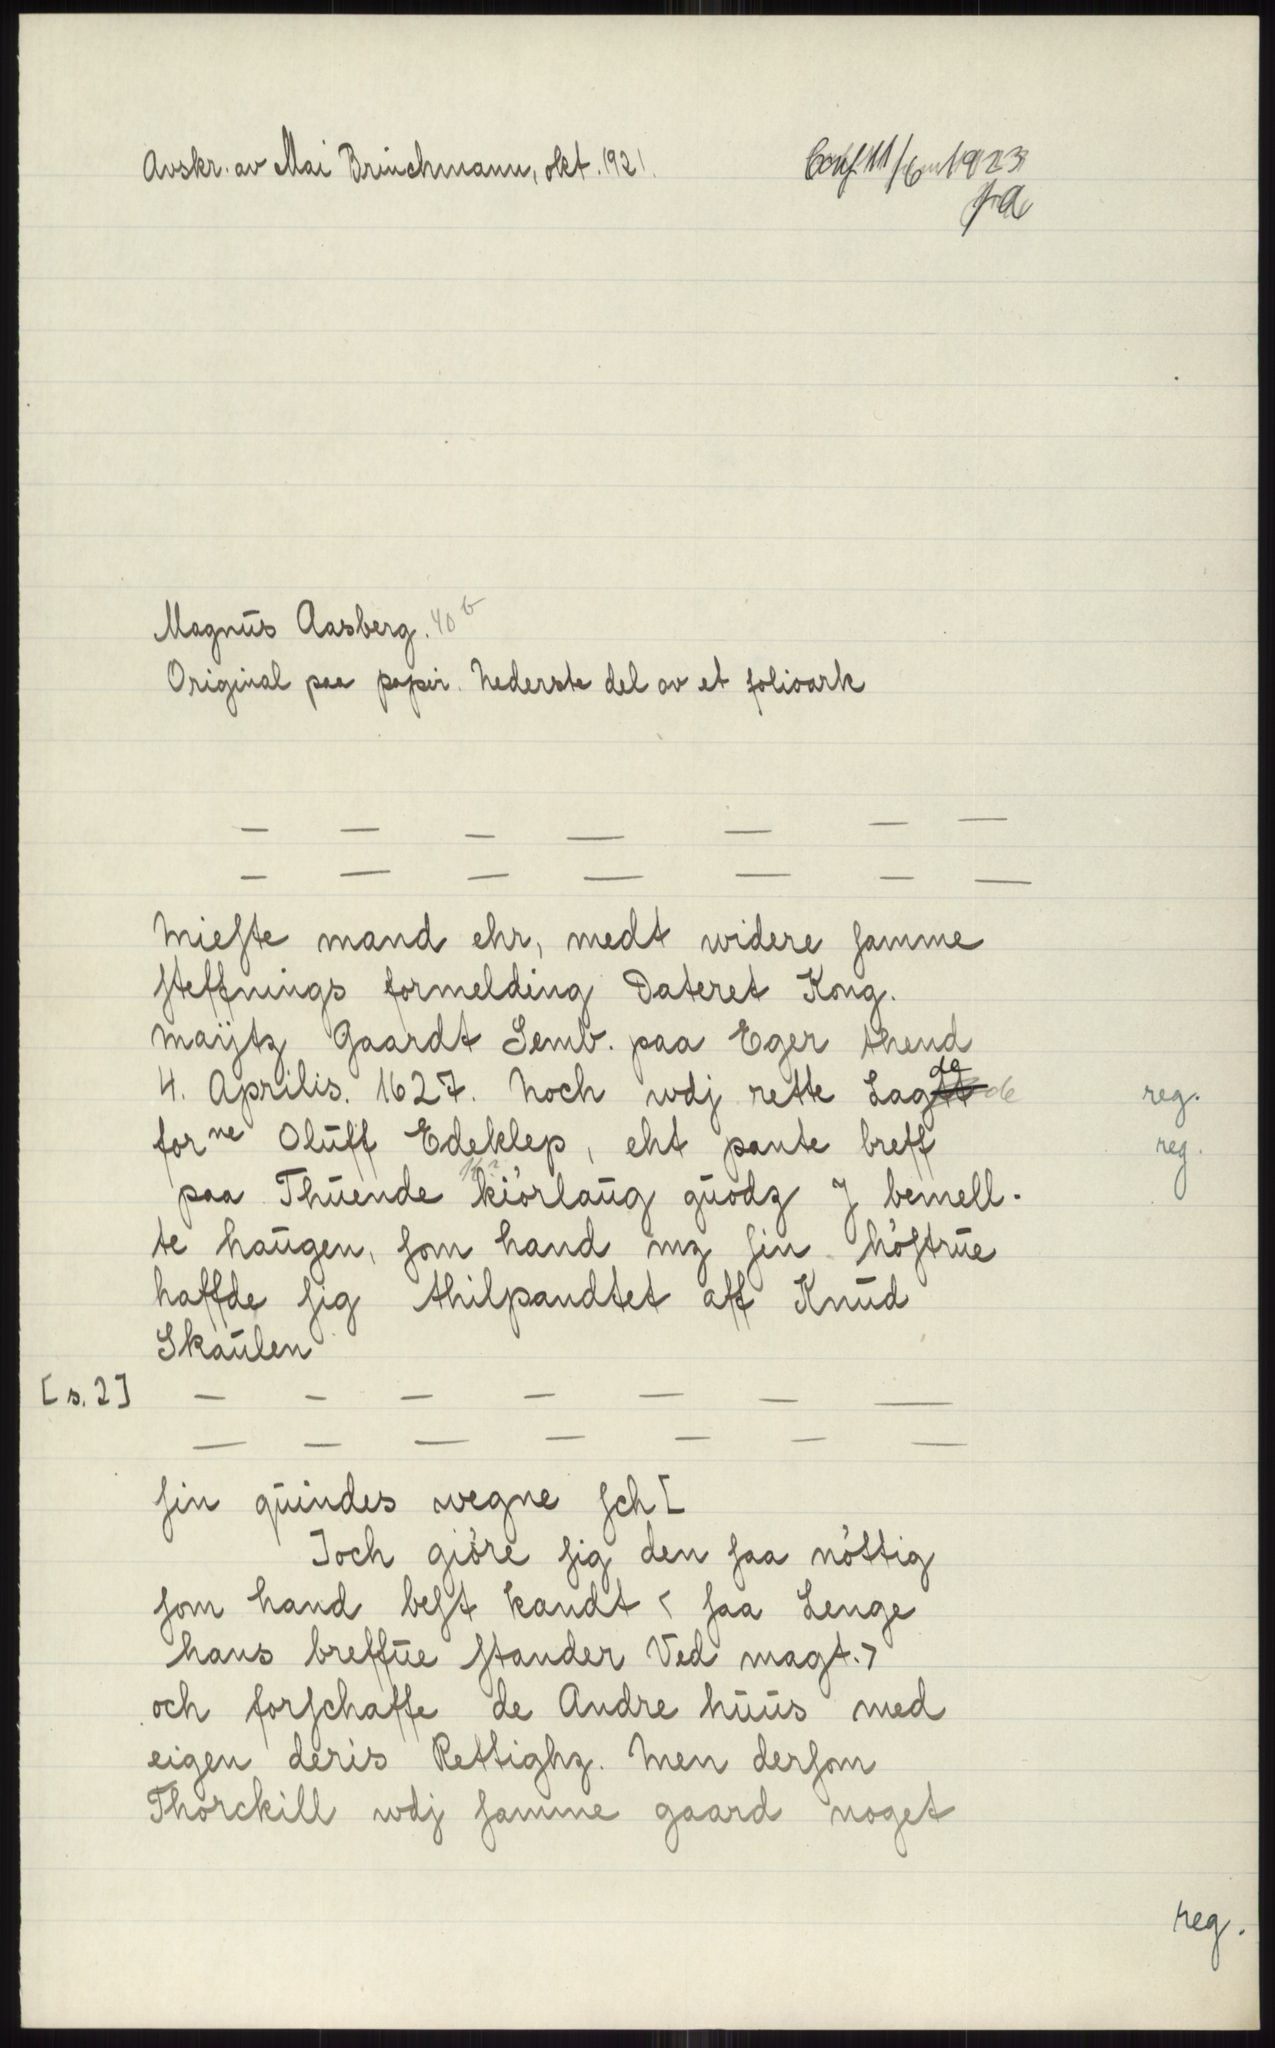 Avskr. av Mai Brinchmann, okt. 1921.
Conf. 11/6 1923
Magnūs Aasberg. 40 b
Original paa papir. Nederste del av et folioark
— — — — — — —
— — — — — — —
Mieſte mand ehr, medt widere ſamme
ſteffnings formelding Dateret Kong.
maÿtz Gaardt Semb. paa Eger thend
4. Aprilis. 1627. Noch wdj rette Lagde
reg.
for ne Olūff Edeklep, eht pante breff
reg.
paa Thūende kiörlaūg gūodz J bemell-
te haūgen, ſom hand mz ſin höſtrūe
haffde ſig thilpandtet aff Knūd
Skaūlen
[s. 2] — — — — — — —
— — — — — — —
ſin qūindes wegne ſch[
]och giöre ſig den ſaa nöttig
ſom hand beſt kandt < ſaa Lenge
hans breffūe ſtander Ved magt. >
och forſchaffe de Andre hūūs med
eigen deris Rettighz. Men derſom
Thorckill wdj ſamme gaard noget
reg.